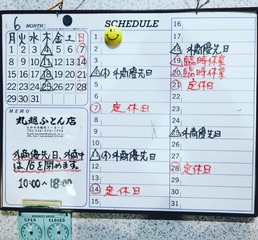 6 MONTH
月 火 水 木 金 土 日
1 2 3 4 5 6 7
8 9 10 11 12 13 14
15 16 17 18 19 20 21
22 23 24 25 26 27 28
29 30 31
MEMO
丸越ふとん店
外商優先日、外商中
は店を閉めます。
10:00～18:00
OPEN CLOSED
SCHEDULE
1
2
3
4 外商優先日
5
6
7 定休日
8
9
10
11 外商優先日
12
13
14 定休日
15
16
17
18 外商優先日
19 臨時休業
20 臨時休業
21 定休日
22
23
24
25 外商優先日
26
27
28 定休日
29
30
31